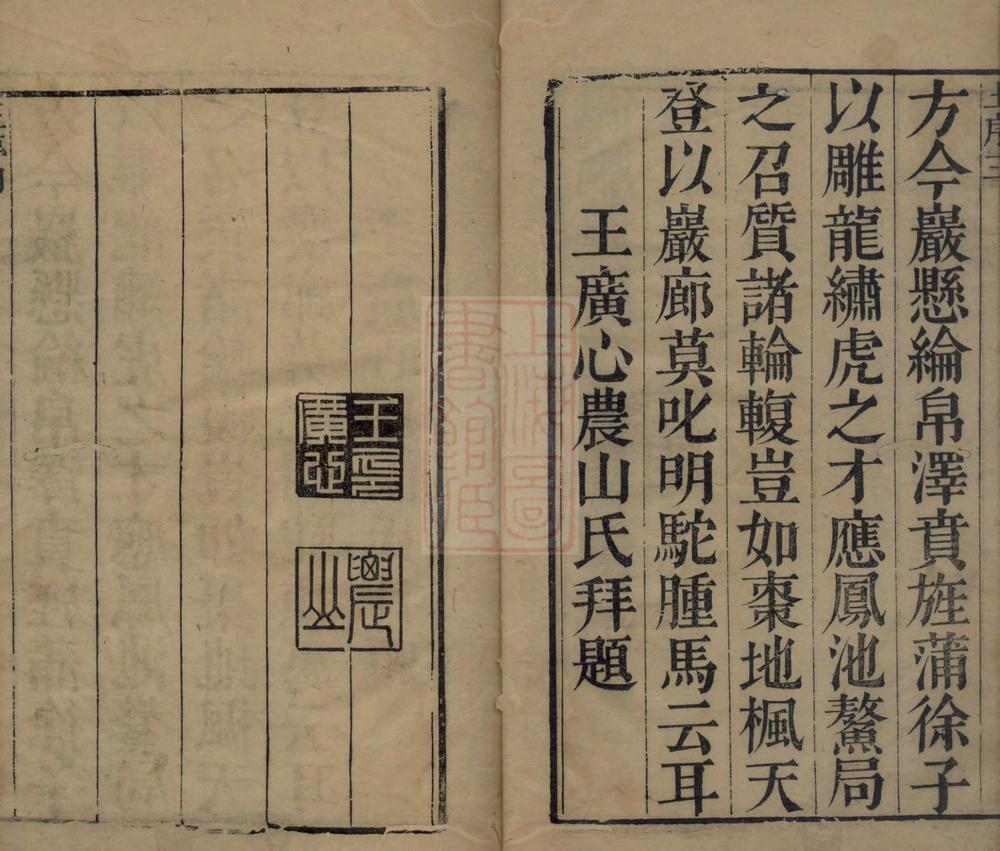 方今巖懸綸帛澤賁旌蒲徐子
以雕龍繡虎之才應鳳池鰲局
之召質諸輪輹豈如棗地楓天
登以巖廊莫叱明駝腫馬云耳
王廣心農山氏拜題
王廣心印
農山
上海圖書館藏